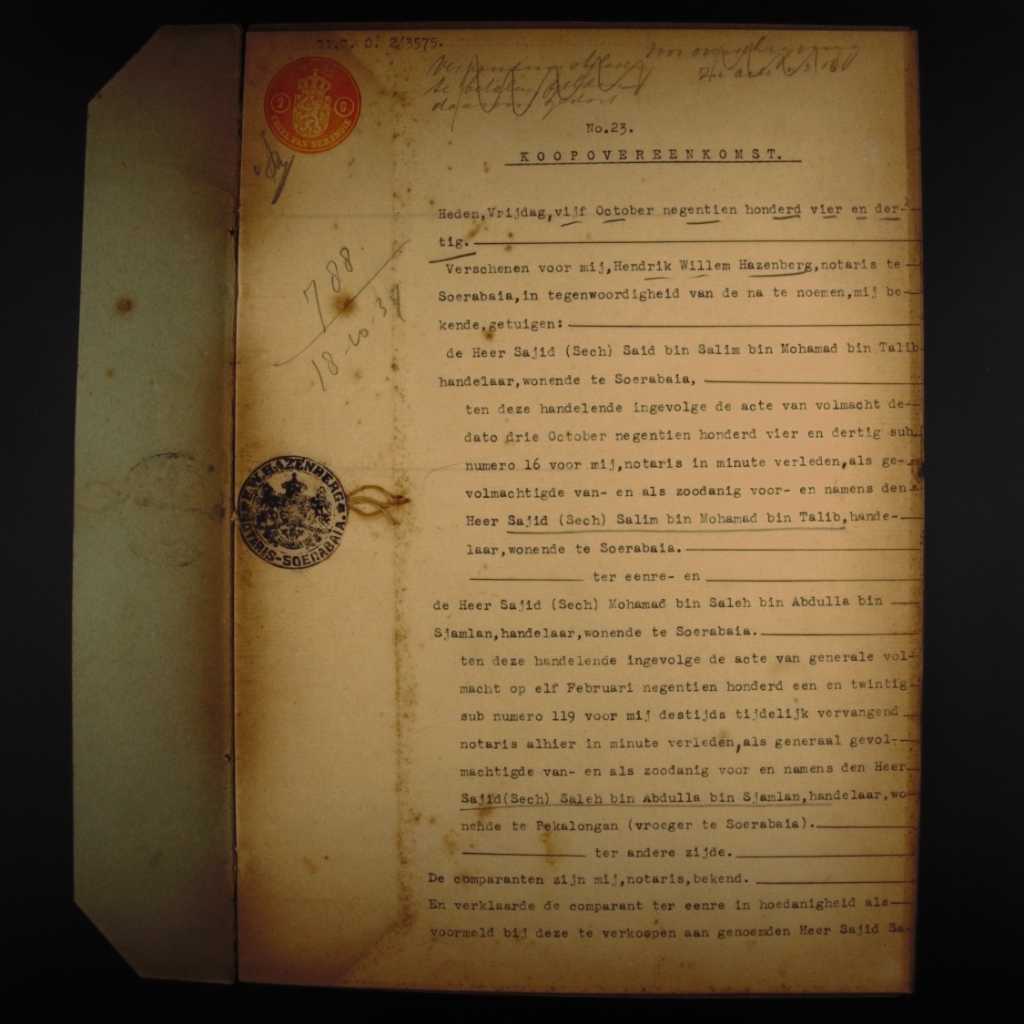 2/3575.
No.23.
KOOPOVEREENKOMST.
Heden,Vrijdag,vijf October negentien honderd vier en der-
tig.
Verschenen voor mij,Hendrik Willem Hazenberg,notaris te
Soerabaia,in tegenwoordigheid van de na te noemen,mij be-
kende,getuigen:
de Heer Sajid (Sech) Said bin Salim bin Mohamad bin Talib
handelaar,wonende te Soerabaia,
ten deze handelende ingevolge de acte van volmacht de-
dato drie October negentien honderd vier en dertig sub
numero 16 voor mij,notaris in minute verleden,als ge-
volmachtigde van- en als zoodanig voor- en namens den
Heer Sajid (Sech) Salim bin Mohamad bin Talib,hande-
laar,wonende te Soerabaia.
ter eenre- en
de Heer Sajid (Sech) Mohamad bin Saleh bin Abdulla bin
Sjamlan,handelaar,wonende te Soerabaia.
ten deze handelende ingevolge de acte van generale vol-
macht op elf Februari negentien honderd een en twintig
sub numero 119 voor mij destijds tijdelijk vervangend
notaris alhier in minute verleden,als generaal gevol-
machtigde van- en als zoodanig voor en namens den Heer
Sajid(Sech) Saleh bin Abdulla bin Sjamlan,handelaar,wo-
nende te Pekalongan (vroeger te Soerabaia).
ter andere zijde.
De comparanten zijn mij,notaris,bekend.
En verklaarde de comparant ter eenre in hoedanigheid als
voormeld bij deze te verkoopen aan genoemden Heer Sajid Sa-
788
18-10-34
H.W. HAZENBERG
NOTARIS-SOERABAIA.